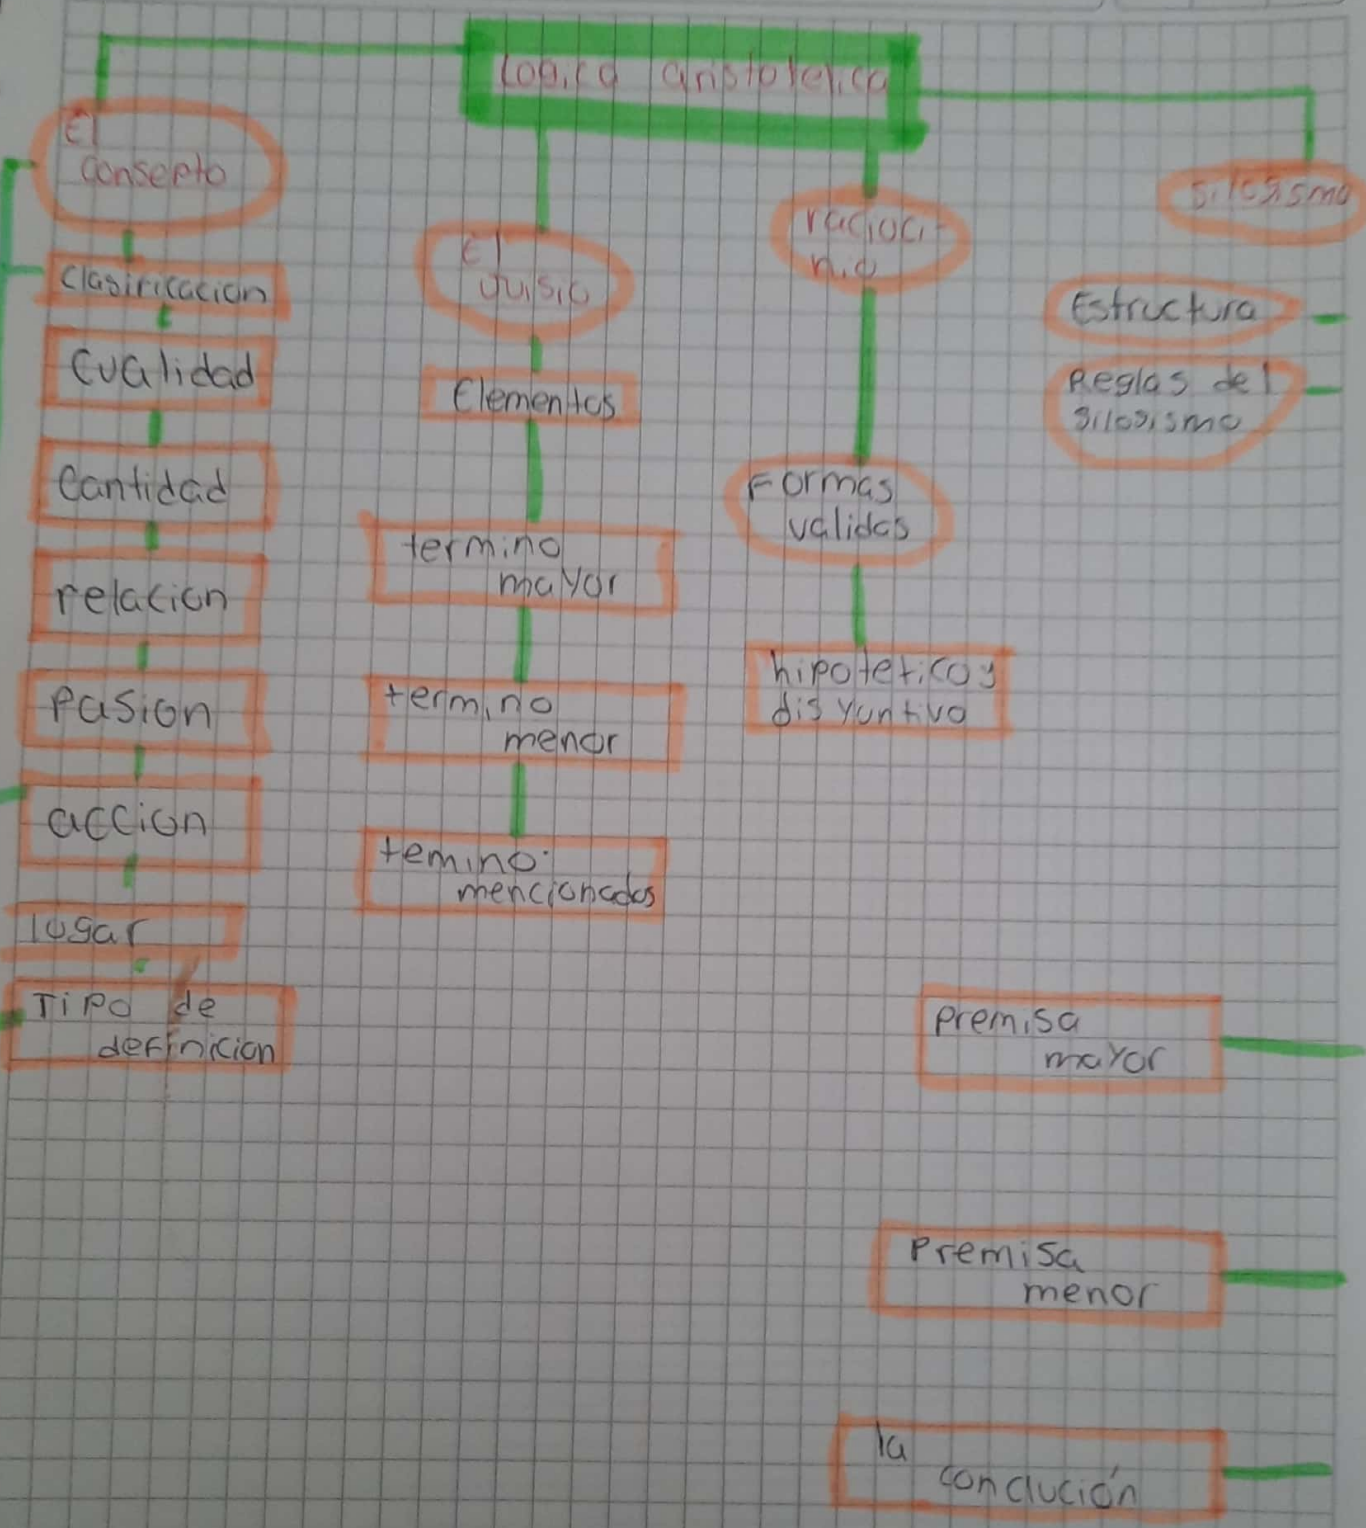 Logica aristotelica
El
Consepto
Clasificacion
Cualidad
Cantidad
relacion
Pasion
accion
lugar
Tipo de
definicion
El
juisio
Elementos
termino
mayor
termino
menor
temino
mencionados
racioci-
nio
Formas
validas
hipotetico y
disyuntivo
silogismo
Estructura
Reglas del
silogismo
Premisa
mayor
Premisa
menor
la
conclución